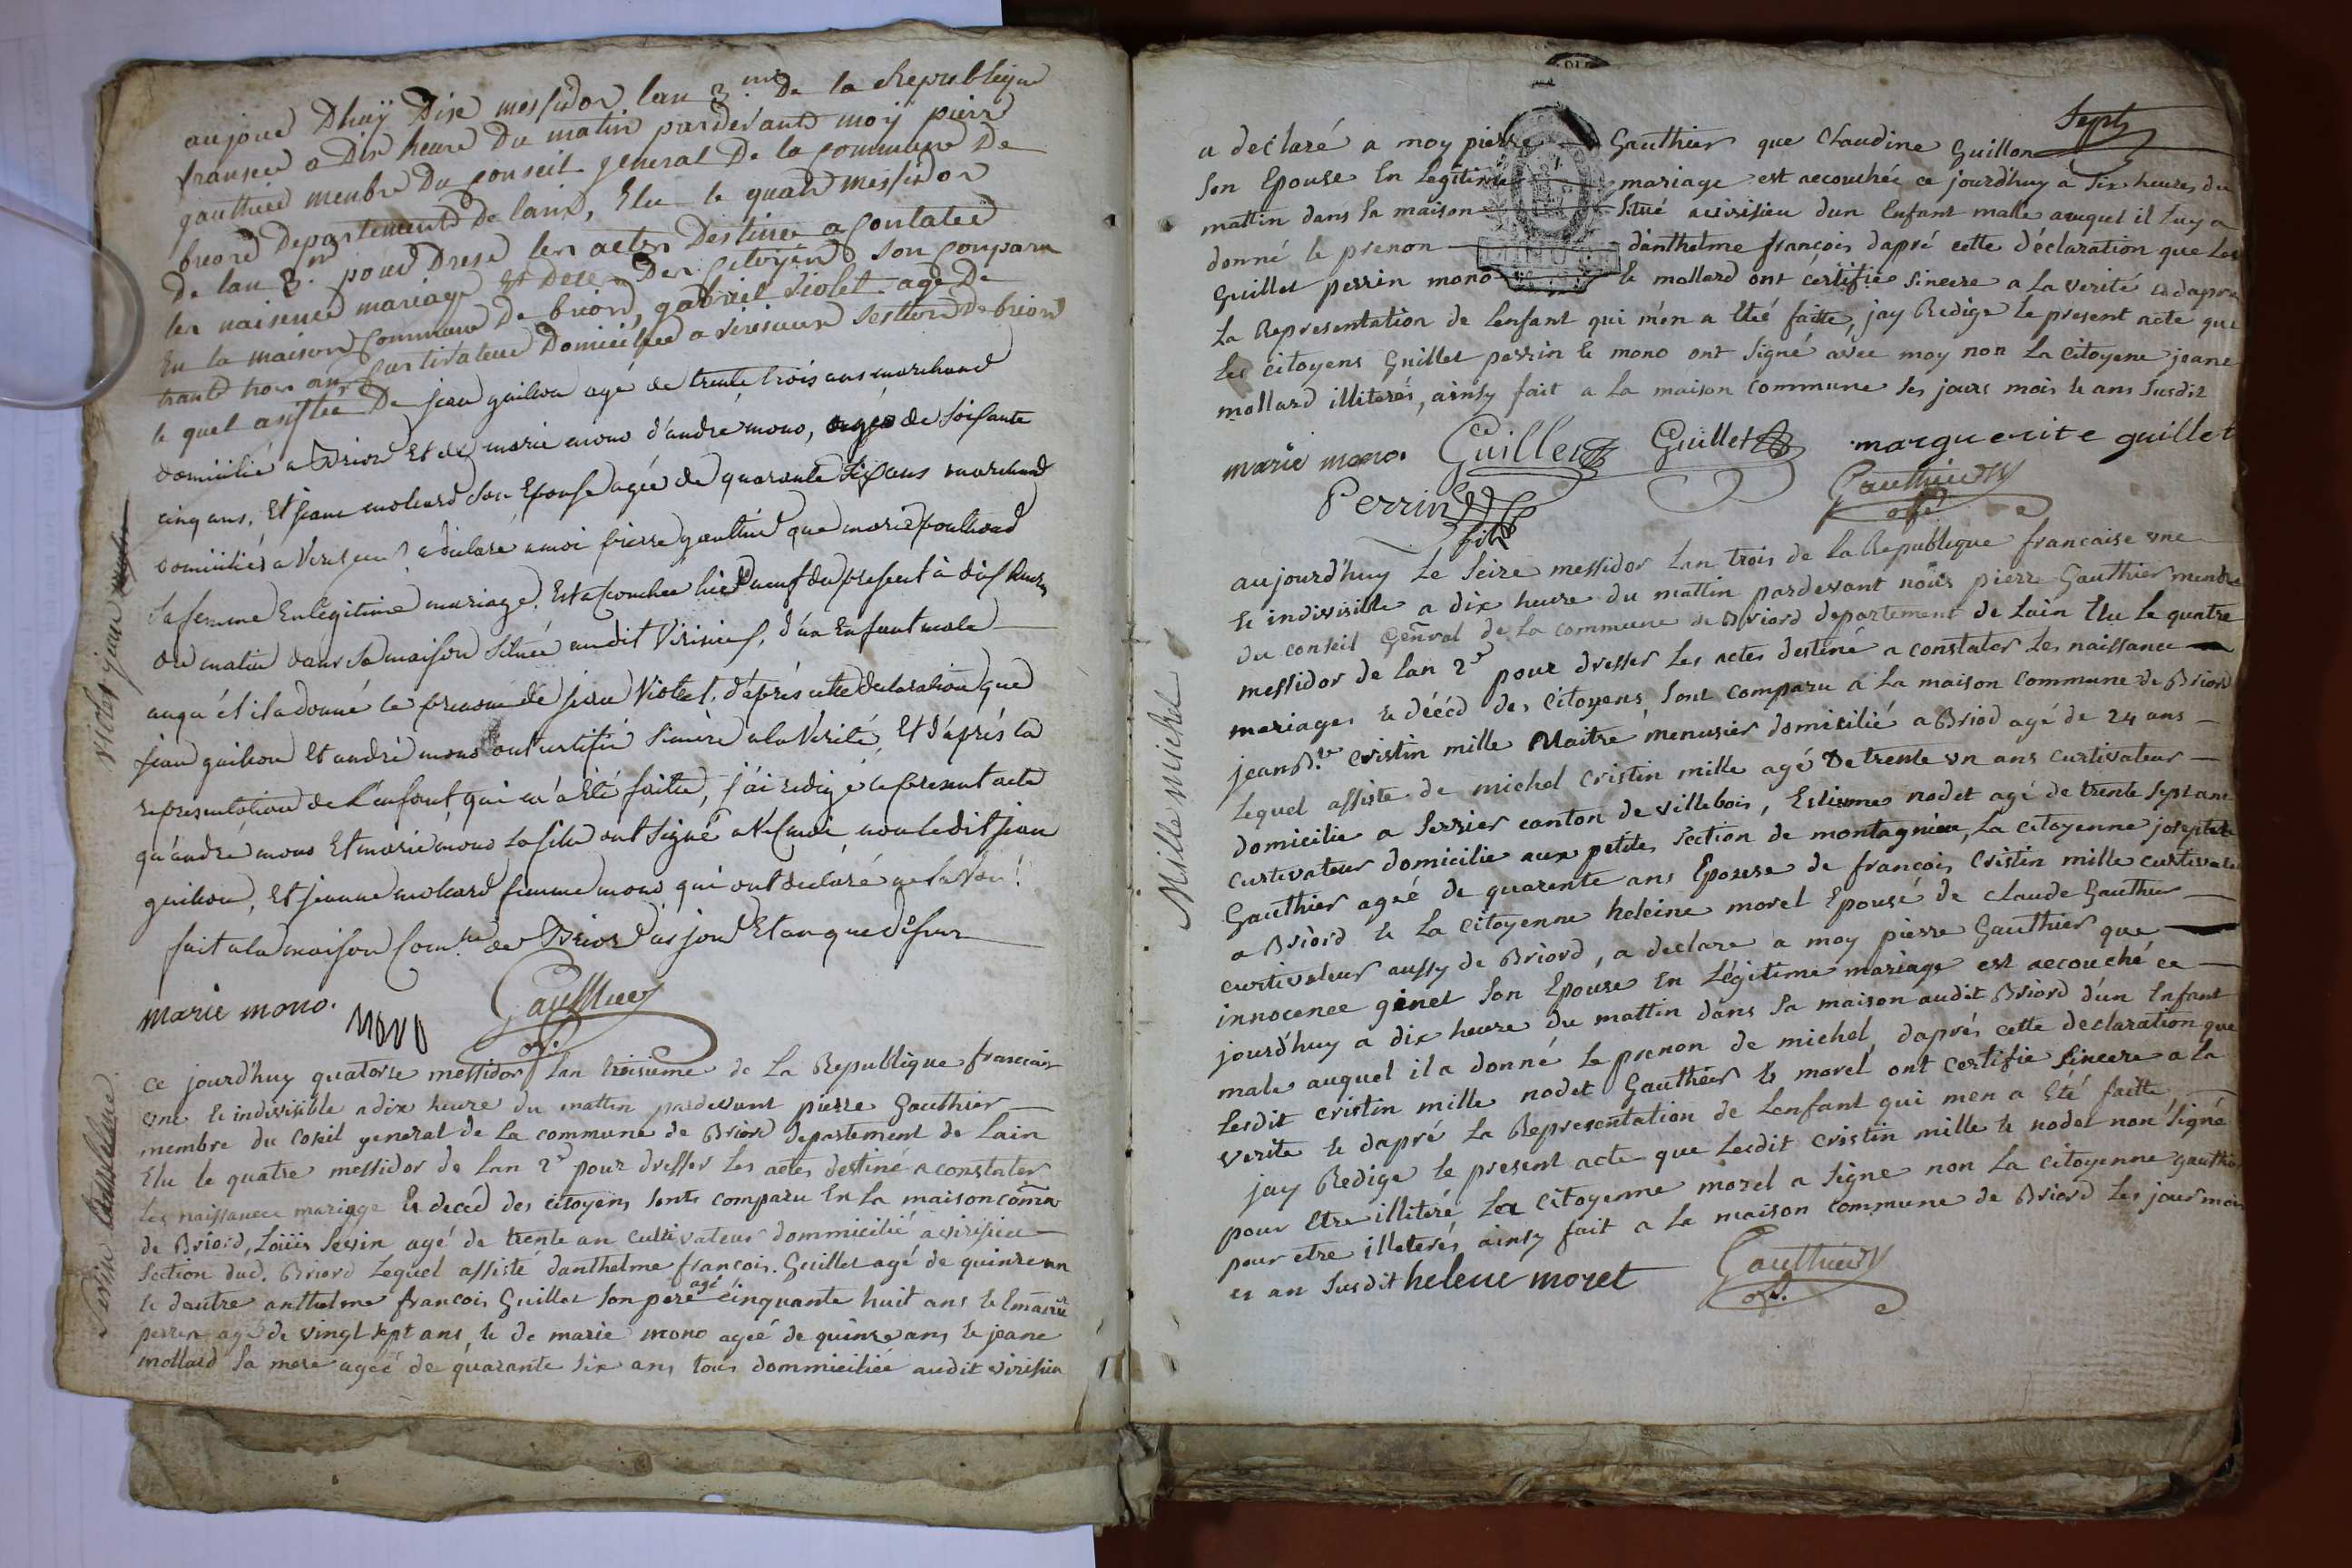 aujour Dhuÿ Dix messidor lan 3.me De la Republique
fransee a Dix heure Du matin pardevant moy pierr
gauthier menbre Du conseil general De la commune De
briord Departement De lainx, Elu le quatr messidor
De lan 3.me pour Dresé les actes Destinee a contater
les naisence mariage et Dese Des Citoyens son conparu
En la maison commune De briord, gabriel violet age De
trante trois ans Curtivateur Domicilhee a virisieux sestion De briord
le quel asistee De jean guilhon agé de trente trois ans marchand
domicilié a Briord Et de marie mono d'andré mono, agée de Soixante
cinq ans, Et jeane molard Son Epouse agée de quarante Six ans marchand
domiciliés a Verisieu a déclaré a moi pierre gauthier que marie
Sa femme En légitime mariage, Est acouchee hier neuf du présent à dix heures
du matin dans Sa maison Située audit Virisieu, d'un Enfant male
auquél il a donné le prenom de jean Violet. d'après cette déclaration que
jean guilhon et andré mono ont certifié Sincère a la Vérité, Et d'après la
représentation de L'enfant, qui m'a été faitte, j'ai redigé le present acte
qu'andré mono Et marie mono Sa fille ont Signé avec moi non ledit jean
guilhon, Et jeanne molard femme mono qui ont declaré ne savoir
fait a la maison Com.ne de Briord les jour Et an que dessus
marie mono. mono Gauthier
off.
violet jean
ce jourd'huy quatorse messidor lan troisieme de La Republique francaise
une et indivisible a dix heure du mattin pardevant pierre Gauthier
membre du coseil general de La commune de Briord departement de Lain
Elu le quatre messidor de Lan 2d pour dresser Les actes destiné a constater
Les naissance mariage Et decéd des citoyens sonts comparu En La maison comun
de Briord, Loüis Sevin agé de trente an cultivateur dommicilié a virisieu
Section dud. Briord Lequel assisté danthelme francois Guillet agé de quinze an
et dautre anthelme françois Guillet son pere agé cinquante huit ans et
perrin agé de vingt sept ans, et de marie mono ageé de quinze ans et jeane
mollard Sa mere ageé de quarante Six ans tous dommiciliée audit virisieu
Sept
a declaré a moy pierre Gauthier que Claudine Guillon
Son Epouse En Legitime mariage est accouchée ce jourd'huy a Six heures du
mattin dans Sa maison Situé a virisieu dun Enfant male auquel il Luy a
donné le prenon d'anthelme françois dapré cette déclaration que Les
Guillet perrin mono et mollard ont certifié Sincere a La verité et dapre
La Representation de Lenfant qui m'en a Eté faitte, jay Redige Le present acte que
Les citoyens Guillet perrin et mono ont Signé avec moy non La citoyene jeane
mollard illiterés, ainsy fait a La maison commune Les jours mois et ans Susdit
marie mono. Guillet Guillet marguerite guillet
Perrin fils Gauthier
off.
aujourd'huy Le Seize messidor Lan trois de la Republique francaise une
et indivisible a dix heure du mattin pardevant nous pierre Gauthier menbre
du conseil Genral de La commune de Briord departement de Lain Elu Le quatre
messidor de Lan 2d pour dresser Les actes destiné a constater Les naissance
mariages et décéd des citoyens, Sont comparu a La maison commune de Briord
jean B.te cristin mille Maitre menusier domicilié a Briod agé de 24 ans
Lequel assiste de michel cristin mille agé De trente un ans curtivateur
domicilie a Serrier canton de villebois, Estienne nodet agé de trente Sept ans
curtivateur domicilie aux petites Section de montagnieu, La citoyenne josephte
Gauthier ageé de quarente ans Epouse de francois Cristin mille curtivateur
a Briord et La citoyenne heleine morel Epouse de claude Gauthier
curtivateur aussy de Briord, a declare a moy pierre Gauthier que
innocence ginet Son Epouse En Légitime mariage est accouché ce
jourd'huy a dix heure du mattin dans Sa maison audit Briord d'un Enfant
male auquel il a donné Le prenon de michel, daprés cette declaration que
Lesdit cristin mille nodet Gauthier et morel ont certifie Sincere a La
verite et dapré La Representation de Lenfant qui men a Eté faitte
jay Redige le present acte que Lesdit cristin mille et nodet non Signé
pour Etre illiteré La citoyenne morel a Signe non La citoyenne gauthier
pour etre illeterés ainsy fait a La maison commune de Briord Les jour mois
es an Susdit helene morel Gauthier
off.
Mille michel